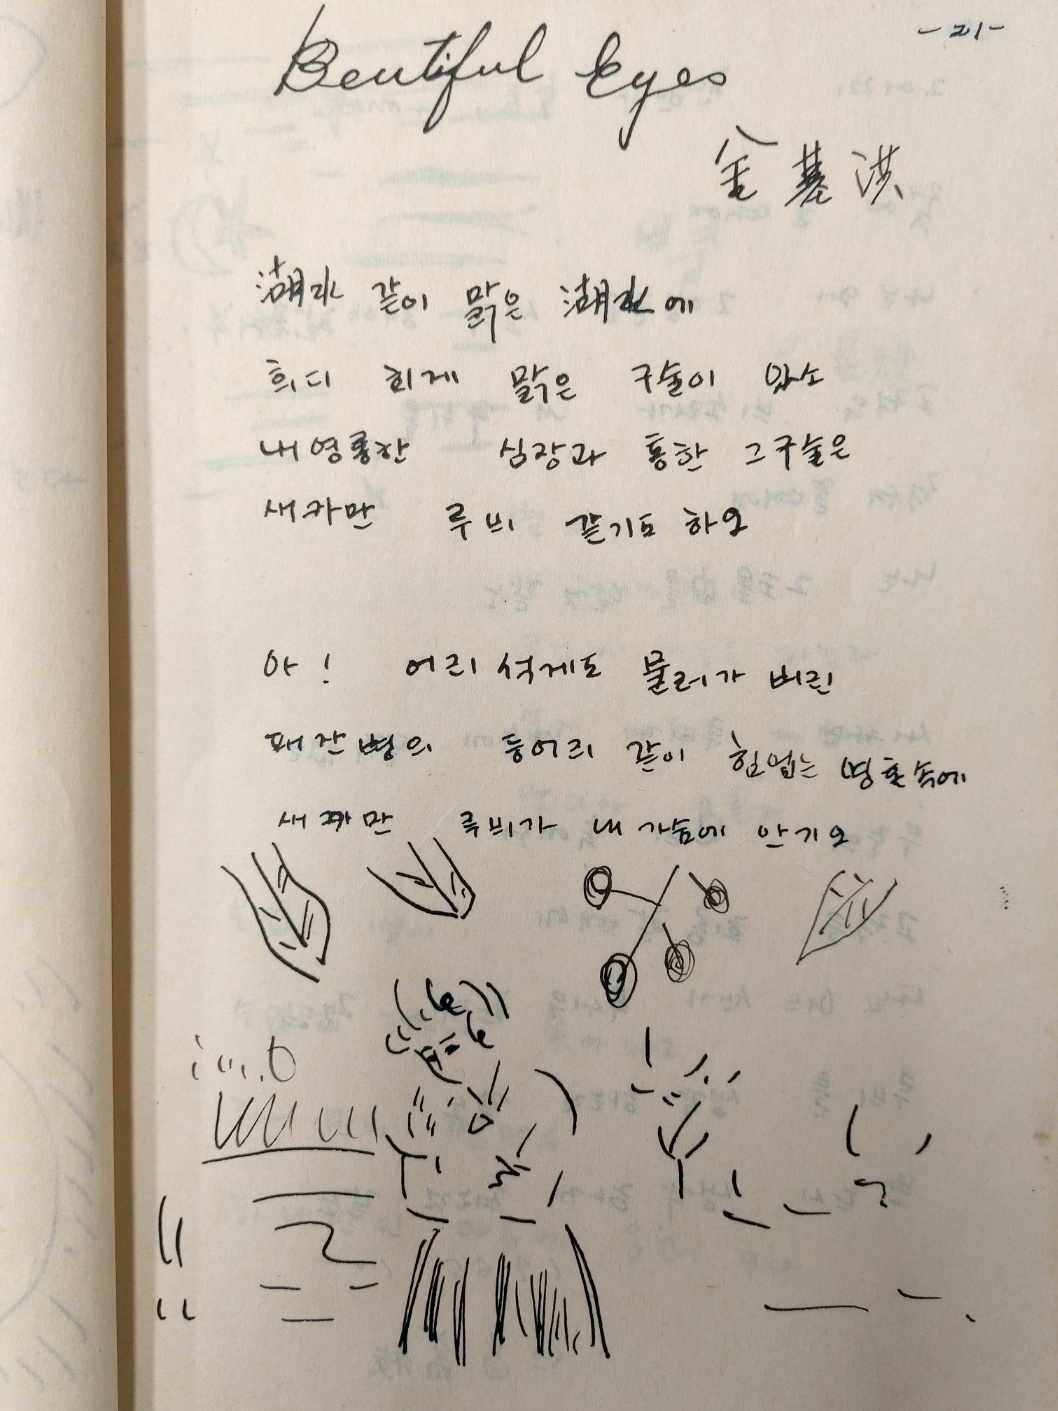 -21-
Beutiful Eyes
金基洪
湖水 같이 맑은 湖水에
희디 희게 맑은 구술이 있소
내 영롱한 심장과 통한 그구술은
새카만 루비 같기도 하오
아! 어리석게도 물러가 버린
패잔병의 등어리 같이 힘없는 영혼속에
새까만 루비가 내 가슴에 안기오